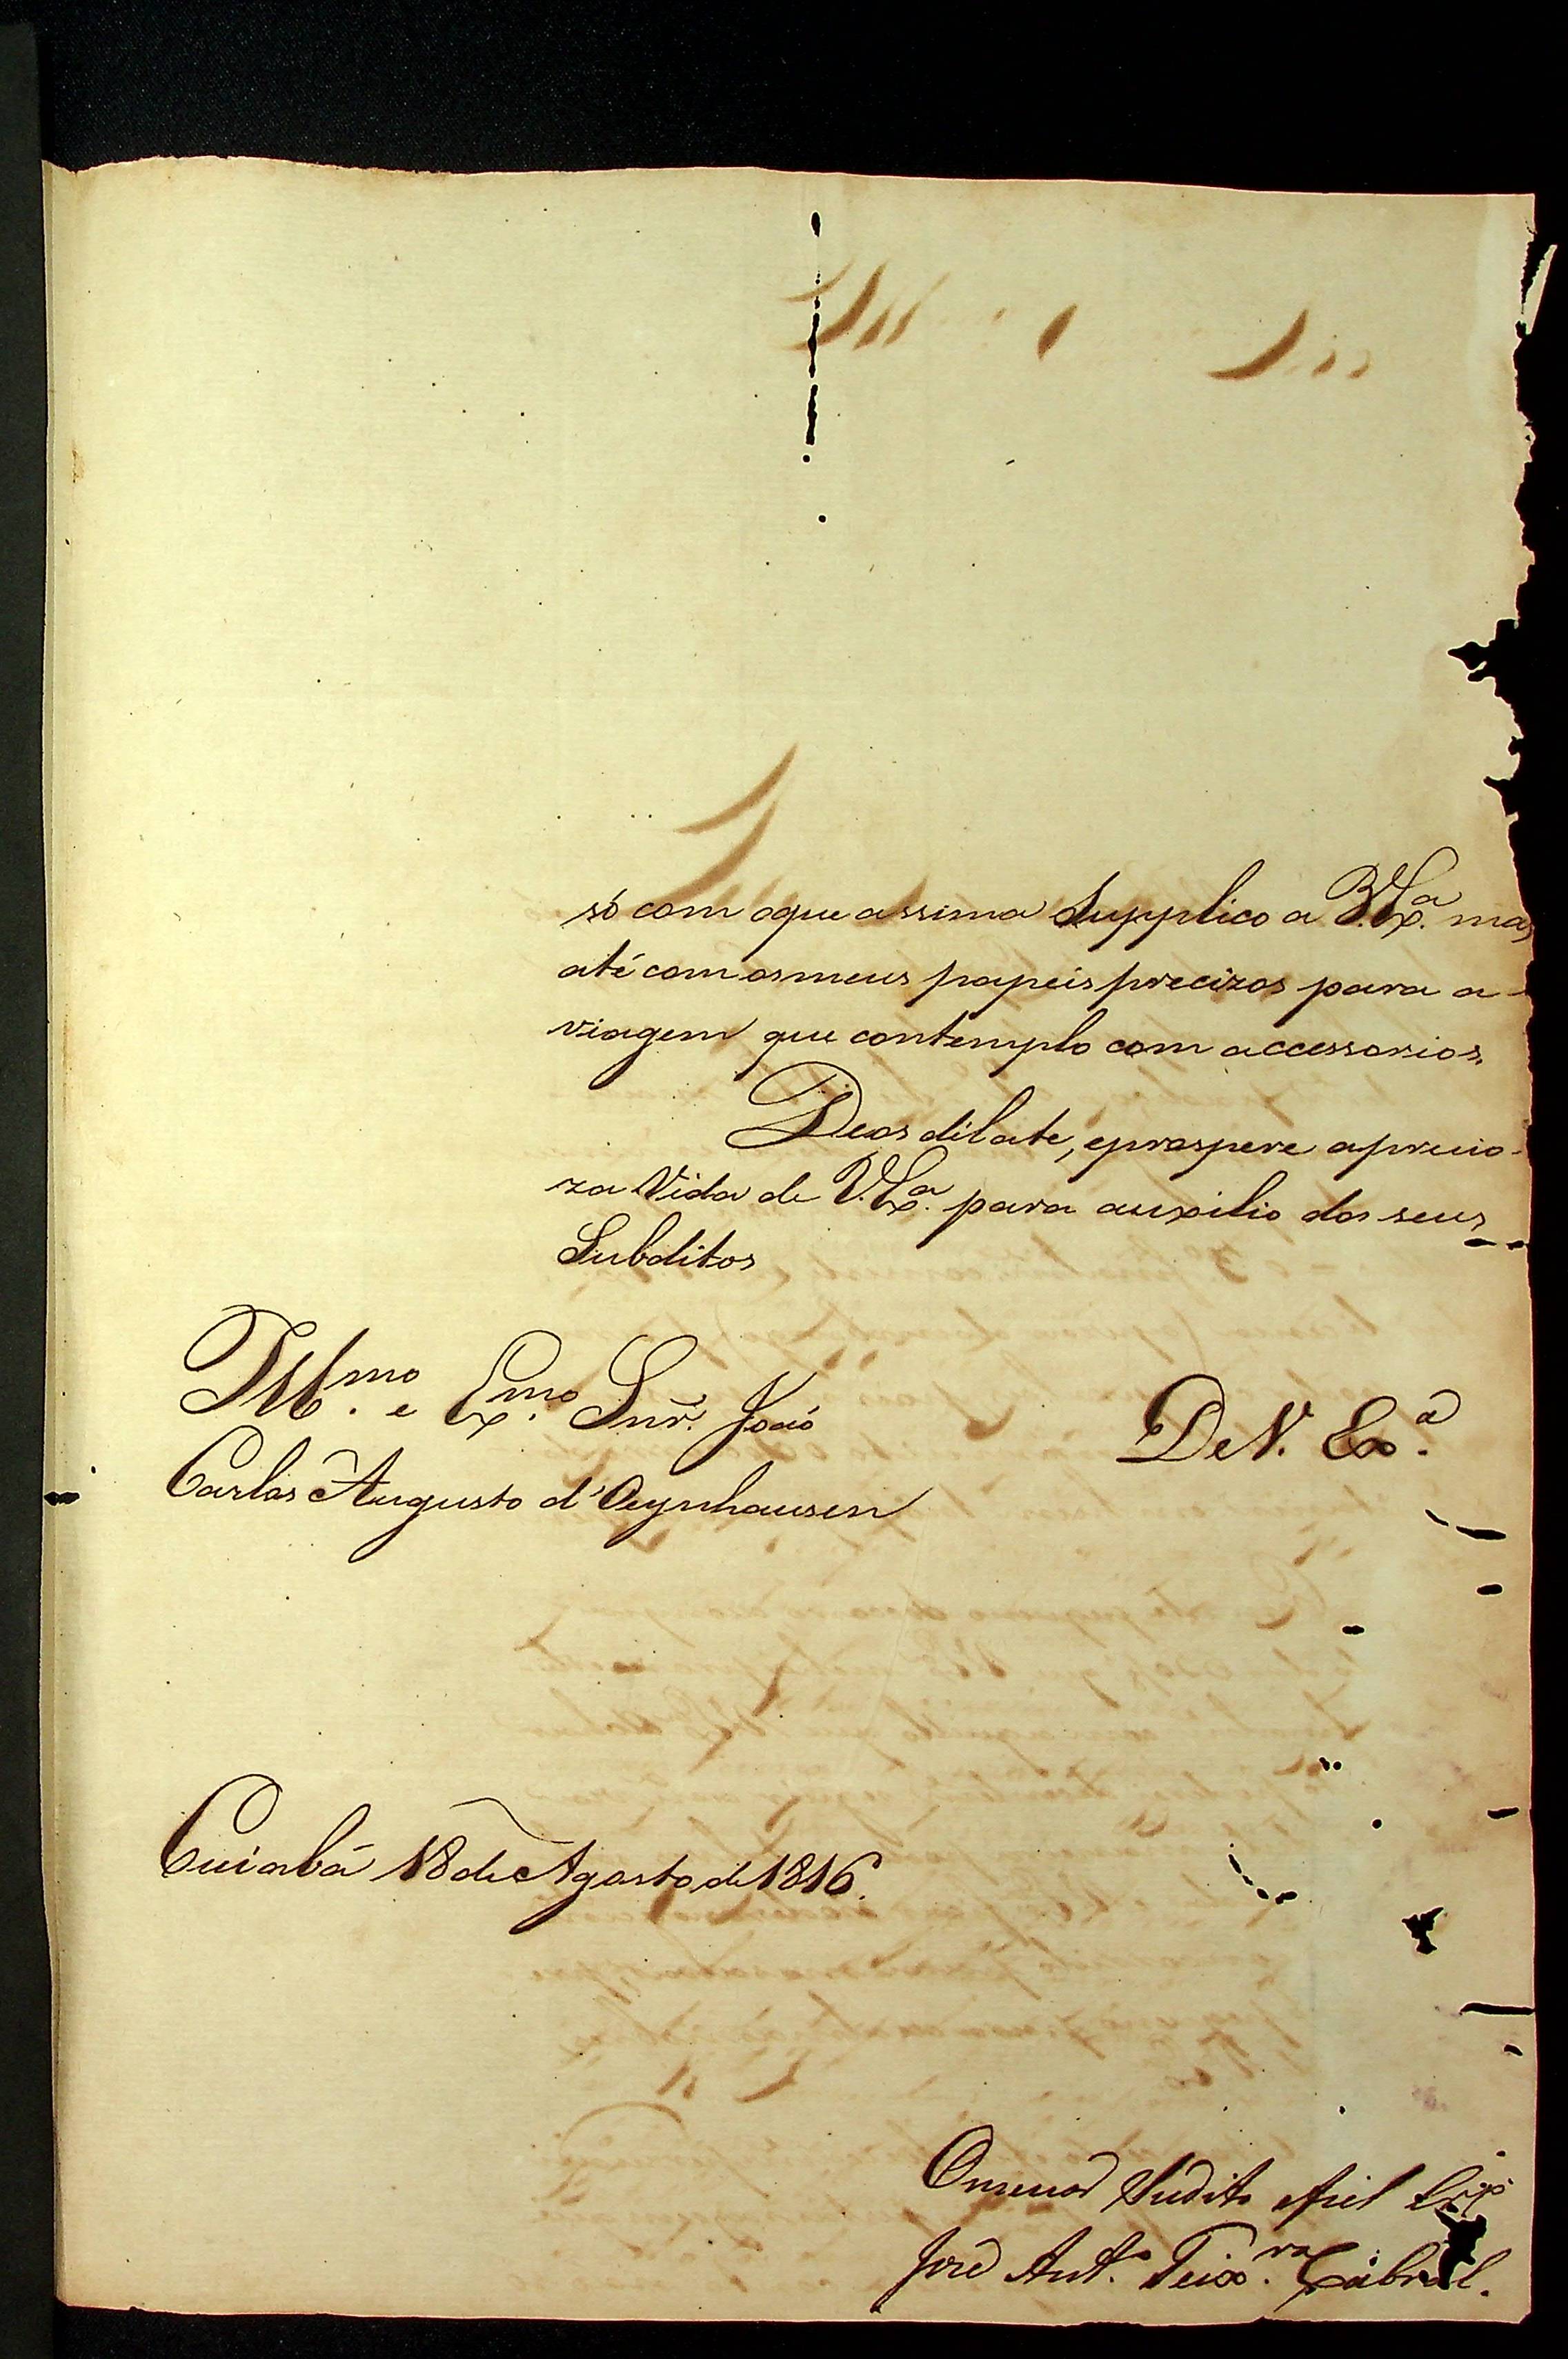 só com oque assima Supplico a V. Exa. mas
até com os meus papeis precizos para a
viagem que contemplo com accessorios.
Deos dilate, eprospere aprecio-
za Vida de V. Exa. para auxilio dos seus
Subditos
Illmo. e Exmo. Snr. João
Carlos Augusto d'Oeynhausen
De V. Exa.
Cuiabá 18 de Agosto de 1816.
Omenor Sudito efiel
José Anto. Teixra. Cabral.